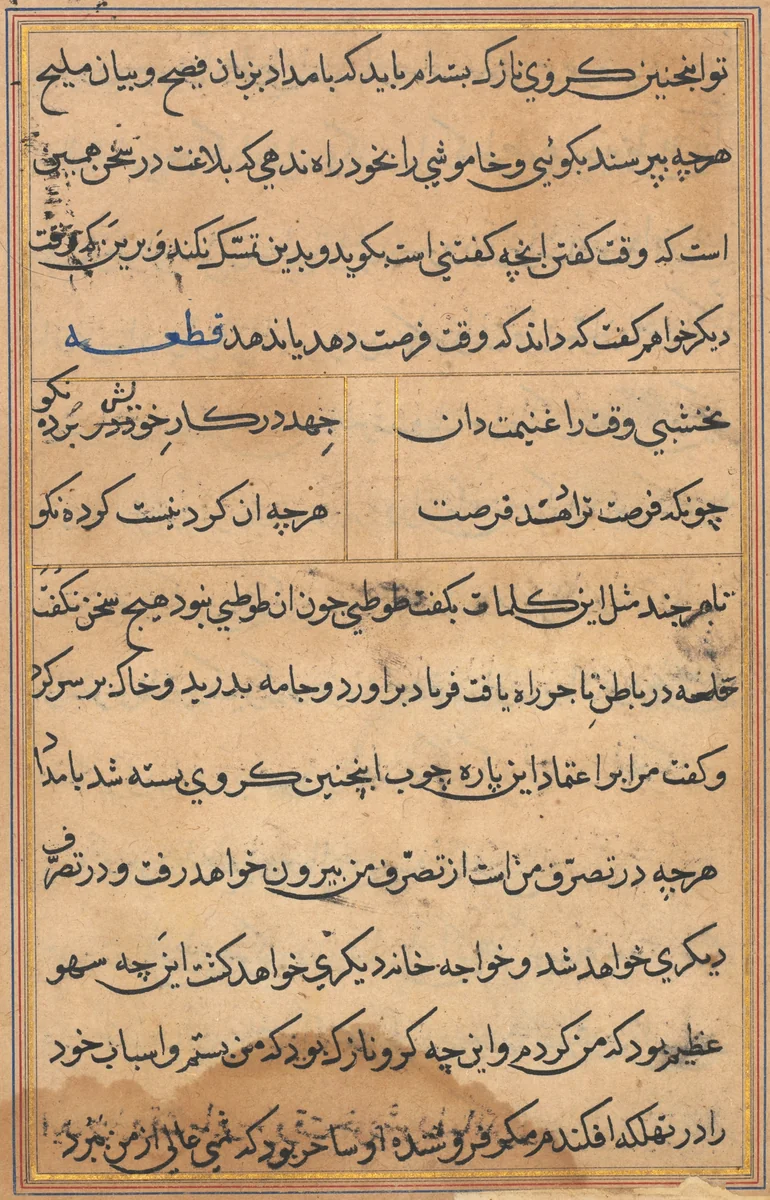 تو اینچنین کروی نازک بسته‌ام باید که بامداد بزبان فصیح و بیان ملیح
هرچه بپرسند بکوئی و خاموشی را بخود راه ندهی که بلاغت در سخن همین
است که وقت کفتن انچه کفتنی است بکوید و بدین تمسّک نکند و برین که وقت
دیکر خواهم کفت که داند که وقت فرصت دهد یا ندهد قطعه
نخشبی وقت را غنیمت دان
جِهد در کارِ خویش در بُرده نکو
چونکه فرصت ترا هُشد فرصت
هرچه ان کردنیست کرده نکو
تاجر چند مثل این کلمات بکفت طوطی چون ان طوطی نبود هیچ سخن نکفت
در باطنِ تاجر راه یافت فریاد براورد و جامه بدرید و خاک بر سر کرد
و کفت مرا بر اعتماد این پاره چوب اینچنین کروی بسته شد بامداد
هرچه در تصرّف من است از تصرّف من بیرون خواهد رفت و در تصرّف
دیکری خواهد شد و خواجه خانه دیکری خواهد کشت این چه سهو
عظیم بود که من کردم و این چه کرو نازک بود که من بستم و اسباب خود
را در تهلکه افکندم مکر فروشنده او ساحر بود که ثمنی عالی از من ببرد